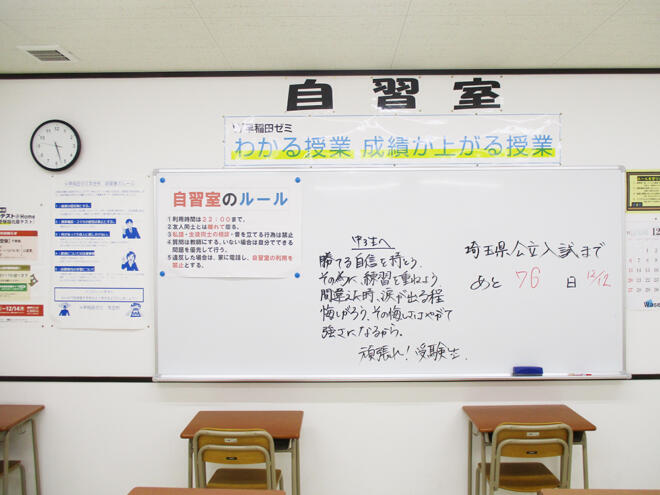 自習室
早稲田ゼミ
わかる授業 成績が上がる授業
自習室のルール
1 利用時間は22:00まで。
2 友人同士とは離れて座る。
3 私語・生徒同士の相談・音を立てる行為は禁止
4 質問は教師にする。いない場合は自分でできる
問題を優先して行う。
5 違反した場合は、家に電話し、自習室の利用を
禁止とする。
中3生へ
勝てる自信を持とう。
その為に、練習を重ねよう
間違えた時、涙が出る程
悔しがろう、その悔しさはやがて
強さになるから。
頑張れ!受験生.
埼玉県公立入試まで
あと 76 日 12/12